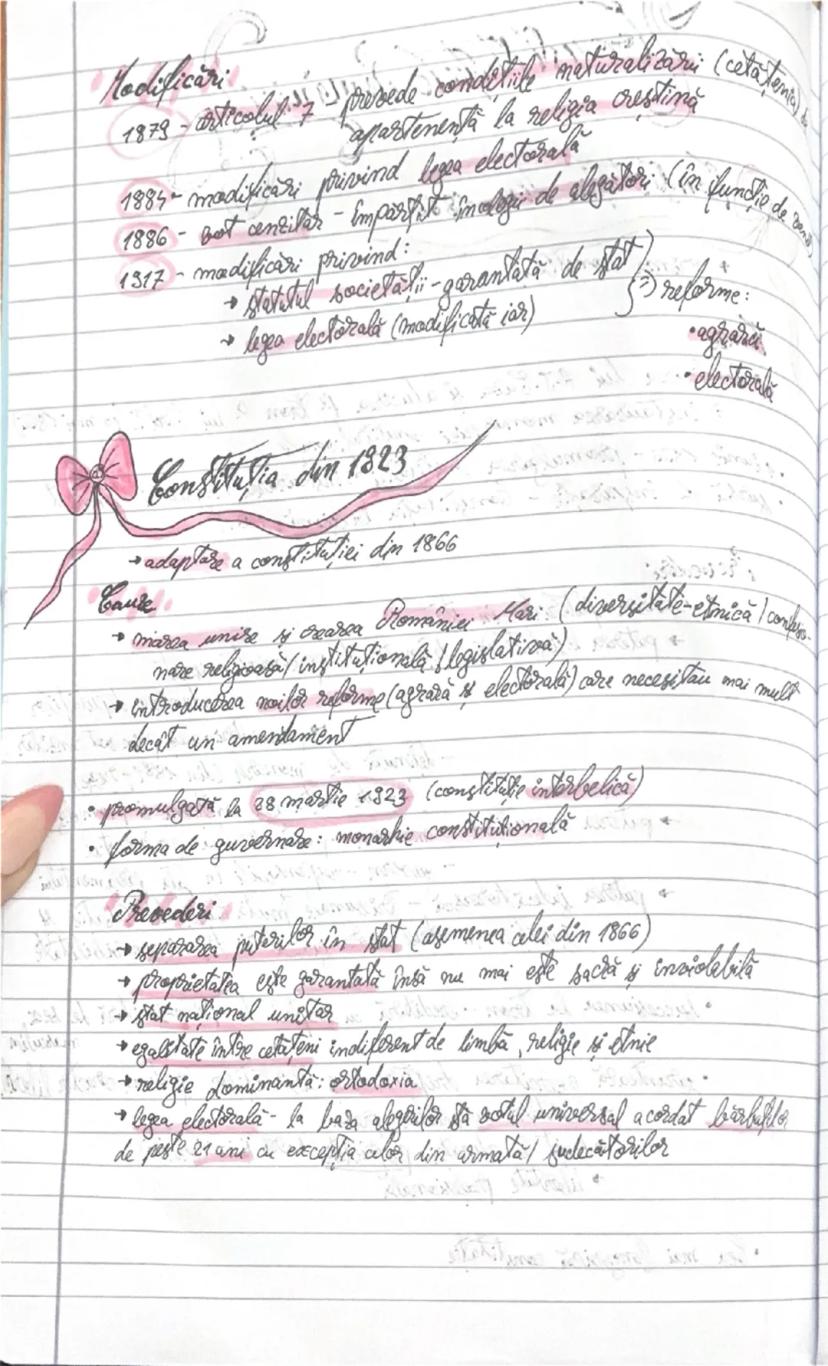 Modificări
1879 - articolul 7 prevede condițiile naturalizării (cetățenia)
apartenență la religia creștină
1884 - modificări privind legea electorală
1886 - vot cenzitar - împărțit în colegii de alegători (în funcție de
1917 - modificări privind:
→ statutul societății - garantată de stat
→ legea electorală (modificată iar)
} => reforme:
• agrară
• electorală
Constituția din 1923
→ adaptare a constituției din 1866
Cauze
→ marea unire și crearea României Mari (diversitate-etnică / confesio-
nare religioasă / instituțională / legislativă)
→ introducerea noilor reforme (agrară și electorală) care necesitau mai mult
decât un amendament
• promulgată la 28 martie 1923 (constituție interbelică)
• forma de guvernare: monarhie constituțională
Prevederi
→ separarea puterilor în stat (asemenea celei din 1866)
→ proprietatea este garantată însă nu mai este sacră și inviolabilă
→ stat național unitar
→ egalitate între cetățeni indiferent de limbă, religie și etnie
→ religie dominantă: ortodoxia
→ legea electorală - la baza alegerilor stă votul universal acordat bărbaților
de peste 21 ani cu excepția celor din armată / judecătorilor